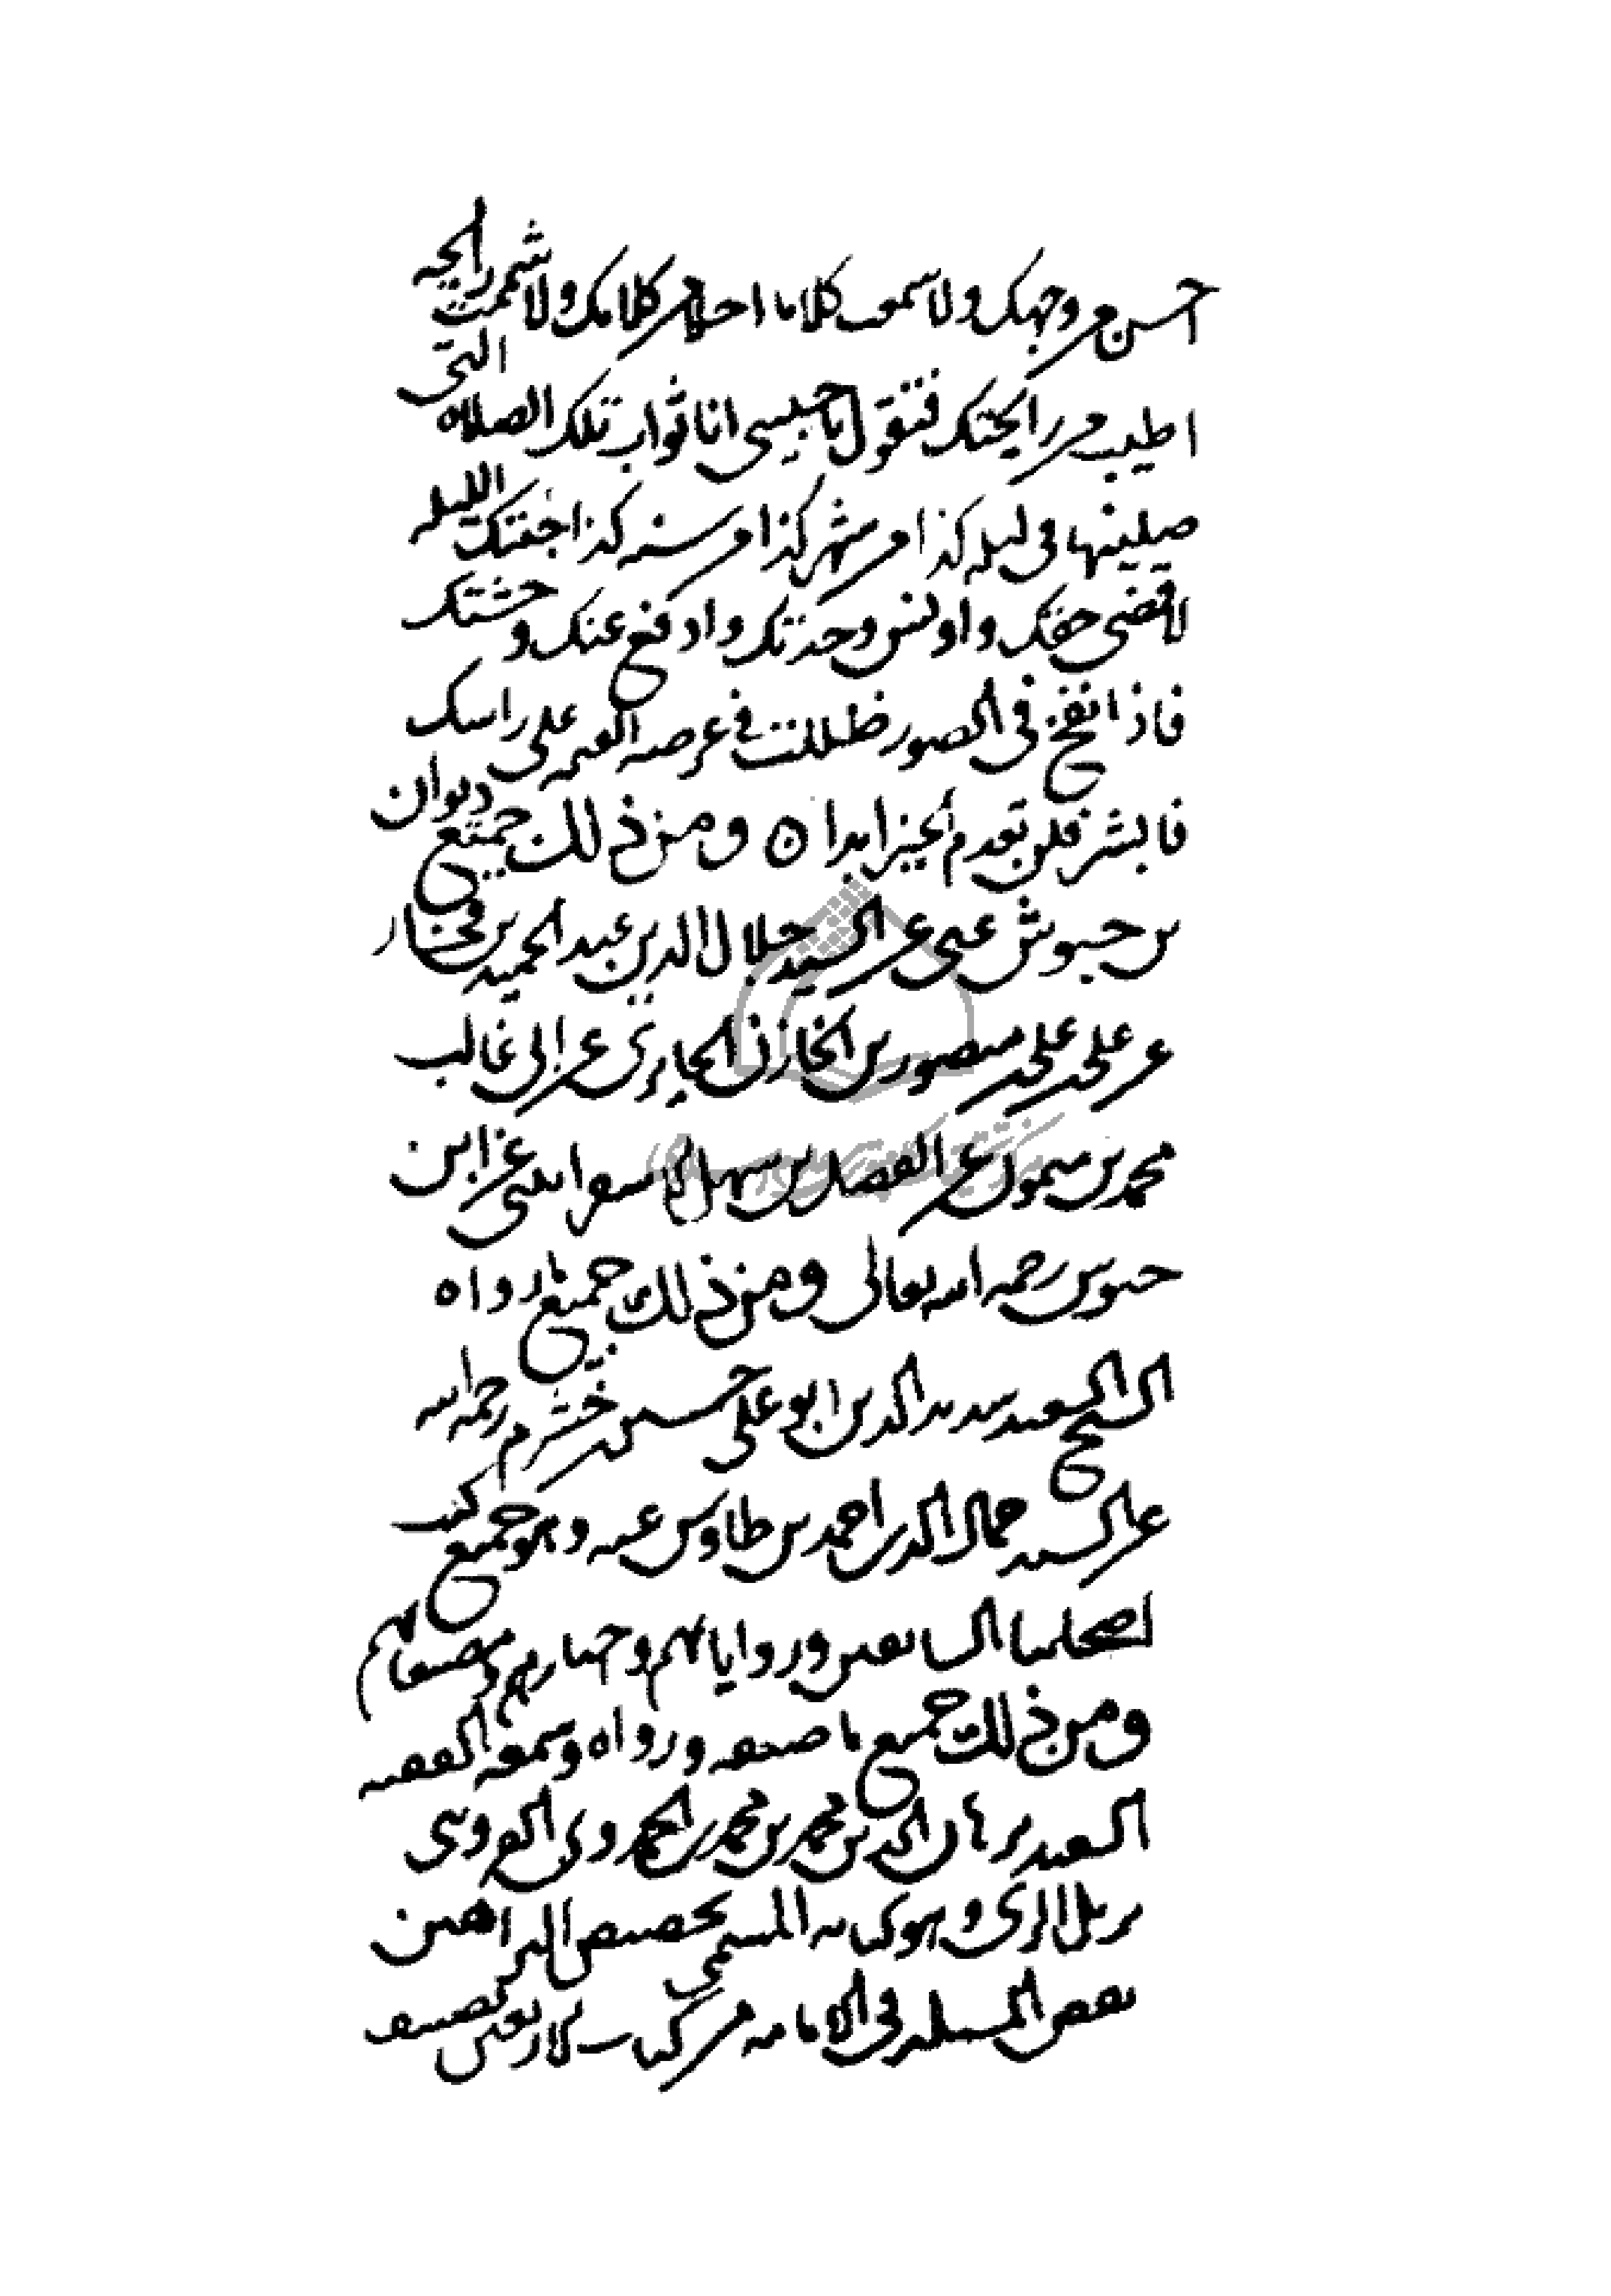 احسن من وجهك ولا سمعت كلاما احلا من كلامك ولا شممت رايحه
اطيب من رايحتك فتقول يا حبيبي انا ثواب تلك الصلاه التي
صليتها في ليله كذا من شهر كذا من سنه كذا جئتك الليله
لاقضي حقك واونس وحدتك وادفع عنك وحشتك
فاذا نفخ في الصور ظللت في عرصه القيمه على راسك
فابشر فلن تعدم الخير ابدا ه ومن ذلك جميع ديوان
بن حيوش عنى عن السيد جلال الدين عبد الحميد بن فخار
عن على على منصور بن الخازن الحايري عن ابي غالب
محمد بن ميمون عن الفضل بن سهل الاسفرايني عن ابن
حيوس رحمه الله تعالى ومن ذلك جميع ما رواه
الشيخ السعيد سديد الدين ابو على حسين خشرم رحمه الله
عن السيد جمال الدين احمد بن طاوس عنه وهو جميع كتب
اصحابنا السابقين ورواياتهم واجازاتهم ومصنفاتهم
ومن ذلك جميع ما صنفه ورواه وسمعه الفقيه
السعيد برهان الدين محمد بن محمد الحمدوي القزويني
نزيل الري وهو كتابه المسمى بتخصيص البراهين
نقض المسئله في الامامه من كتاب الاربعين تصنيف